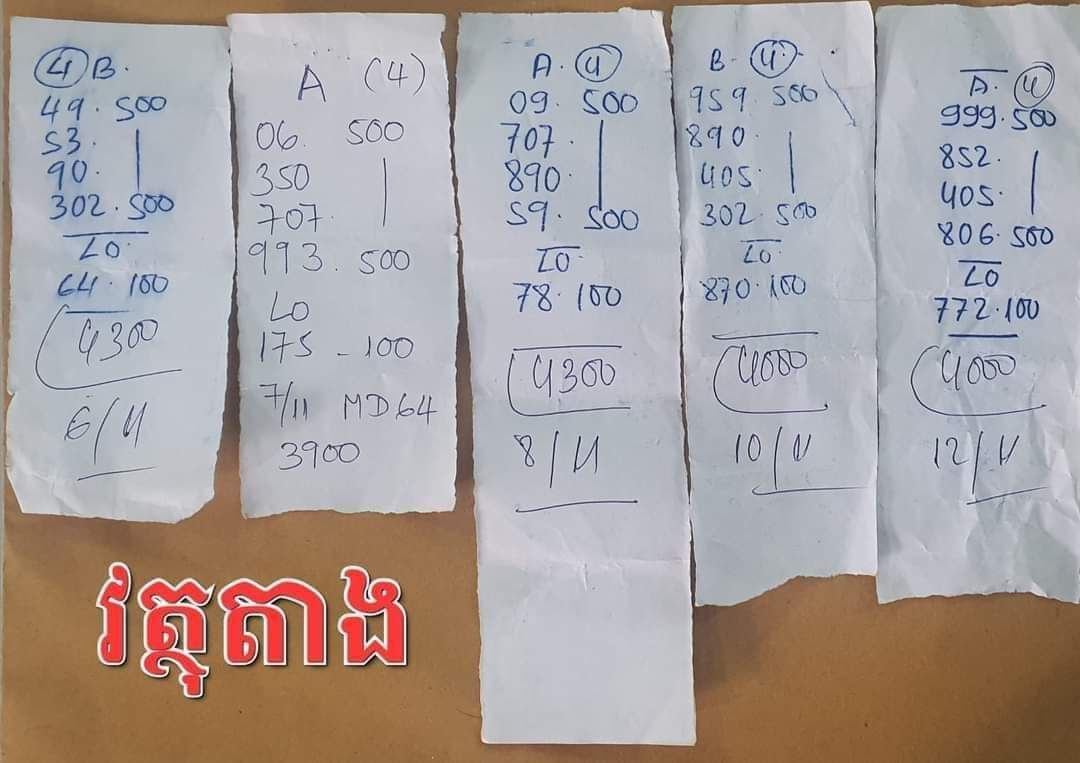 ④ B.
49. 500
53. |
90. |
302. 500
LO.
64. 100
4300
6/11
A (4)
06. 500
350 |
707. |
993. 500
LO
175 - 100
7/11 MD64
3900
A. ④
09. 500
707. |
890. |
59. 500
LO.
78. 100
4300
8/11
B. ④
959. 500
890. |
405. |
302. 500
LO.
870. 100
4000
10/11
A. ④
999. 500
852. |
405. |
806. 500
LO
772. 100
4000
12/11
វត្ថុតាង